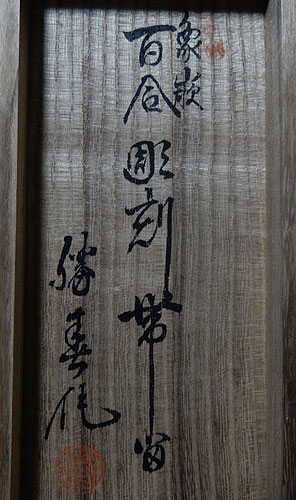 象嵌
百合彫刻帯留
勝春作